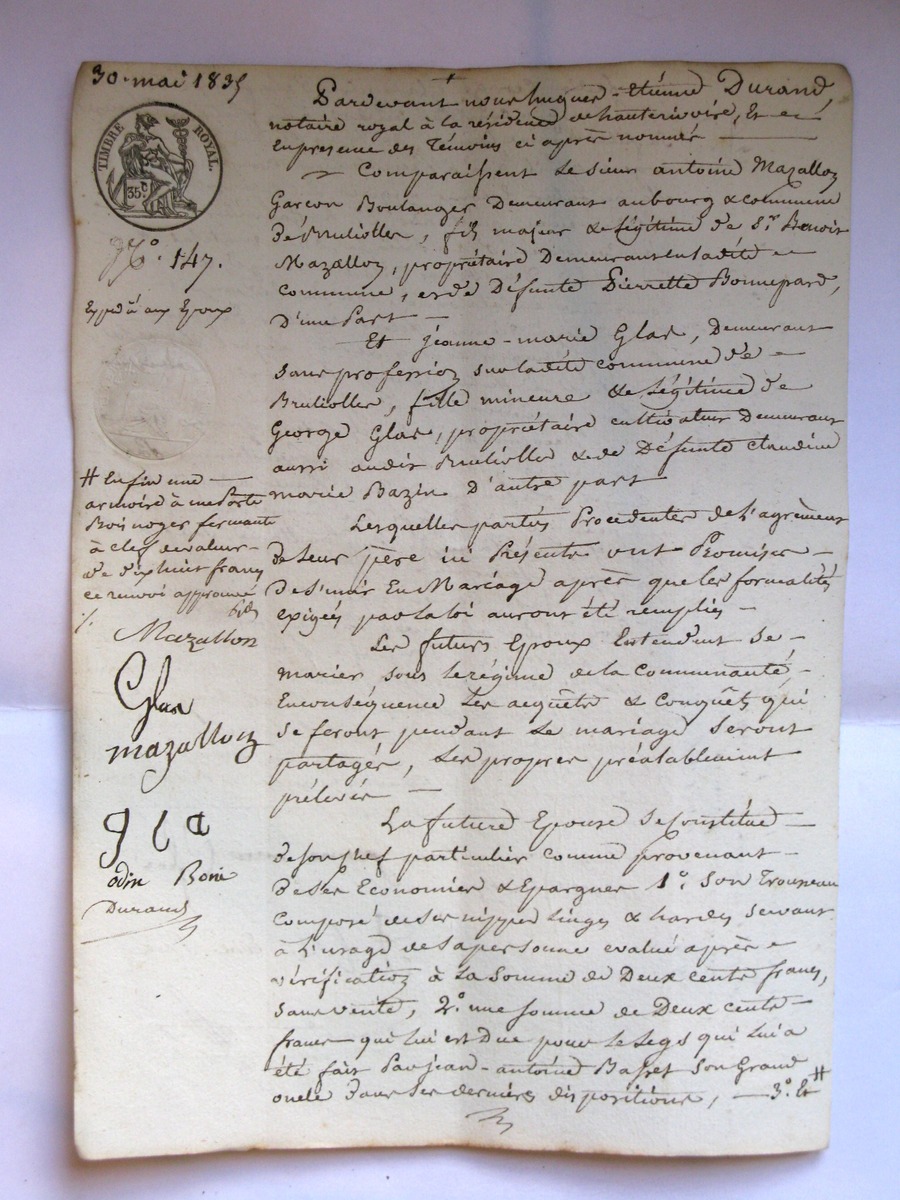 30. mai 1835
TIMBRE ROYAL.
35 C
N.o 147.
Expédié aux Epoux
Pardevant nous hugues-Etienne Durand,
notaire royal à la résidence de hauterivoire, Et
En présence des Témoins ci après nommés —
Comparaissent Le sieur antoine Mazallon
Garçon Boulanger Demeurant aubourg & commune
de Brullioles, fils majeur & légitime de S.r Benoit
Mazallon, propriétaire Demeurant en ladite
commune, et de Défunte Pierrette Bonnepard,
D'une Part —
Et jeanne-marie Glas, Demeurant
sans profession sur ladite commune de
Brullioles, fille mineure & légitime de
George Glas, propriétaire cultivateur Demeurant
aussi audit Brullioles & de Défunte claudine
marie Bazin D'autre part
Lesquelles parties Procedentes de L'agrément
de Leur père ici Présents ont Promises —
De S'unir En Mariage après que les formalités
exigées par la loi auront été remplies —
Les futurs Epoux Entendent Se —
marier sous le régime de la Communauté,
En conséquence Les acquêts & conquêts qui
se feront pendant Le mariage seront
partagés, Les propres préalablement
prélevés —
La future Epouse se Constitue —
de son chef particulier comme provenant —
De Ses Economies & Epargnes 1.o Son Trousseau
Composé de ses nippes linges & hardes servant
à L'usage de sa personne evalué après
vérification à La Somme de Deux cents francs,
sans vente, 2.o une somme de Deux cents
francs qui lui est Due pour le Legs qui lui a
été fait Par jean-antoine Basset Son Grand
oncle Dans ses dernières dispositions, — 3.o Et #
# Enfin une —
armoire à une Porte
Bois noyer fermant
à clef de valeur
de dix huit francs
ce renvoi approuvé
Mazallon
Glas
mazallon
gla
odin Boni
Durand